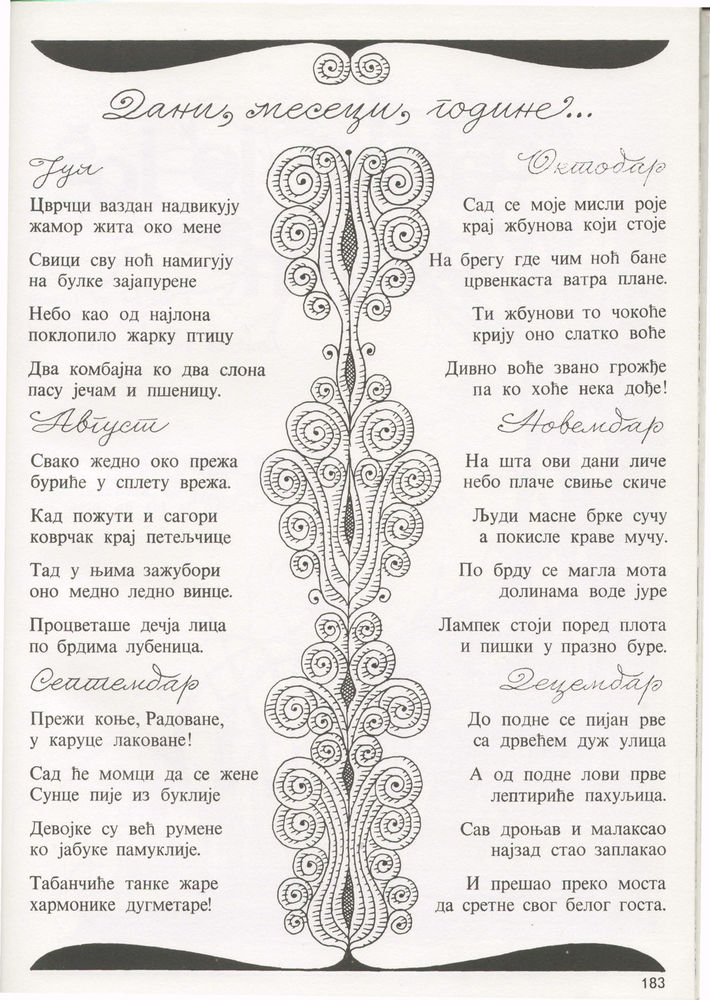 Дани, месеци, године...
Јул
Цврчци ваздан надвикују
жамор жита око мене
Свици сву ноћ намигују
на булке зајапурене
Небо као од најлона
поклопило жарку птицу
Два комбајна ко два слона
пасу јечам и пшеницу.
Август
Свако жедно око прежа
буриће у сплету врежа.
Кад пожути и сагори
коврчак крај петељчице
Тад у њима зажубори
оно медно ледно винце.
Процветаше дечја лица
по брдима лубеница.
Септембар
Прежи коње, Радоване,
у каруце лаковане!
Сад ће момци да се жене
Сунце пије из буклије
Девојке су већ румене
ко јабуке памуклије.
Табанчиће танке жаре
хармонике дугметаре!
Октобар
Сад се моје мисли роје
крај жбунова који стоје
На брегу где чим ноћ бане
црвенкаста ватра плане.
Ти жбунови то чокоће
крију оно слатко воће
Дивно воће звано грожђе
па ко хоће нека дође!
Новембар
На шта ови дани личе
небо плаче свиње скиче
Људи масне брке сучу
а покисле краве мучу.
По брду се магла мота
долинама воде јуре
Лампек стоји поред плота
и пишки у празно буре.
Децембар
До подне се пијан рве
са дрвећем дуж улица
А од подне лови прве
лептириће пахуљица.
Сав дроњав и малаксао
најзад стао заплакао
И прешао преко моста
да сретне свог белог госта.
183